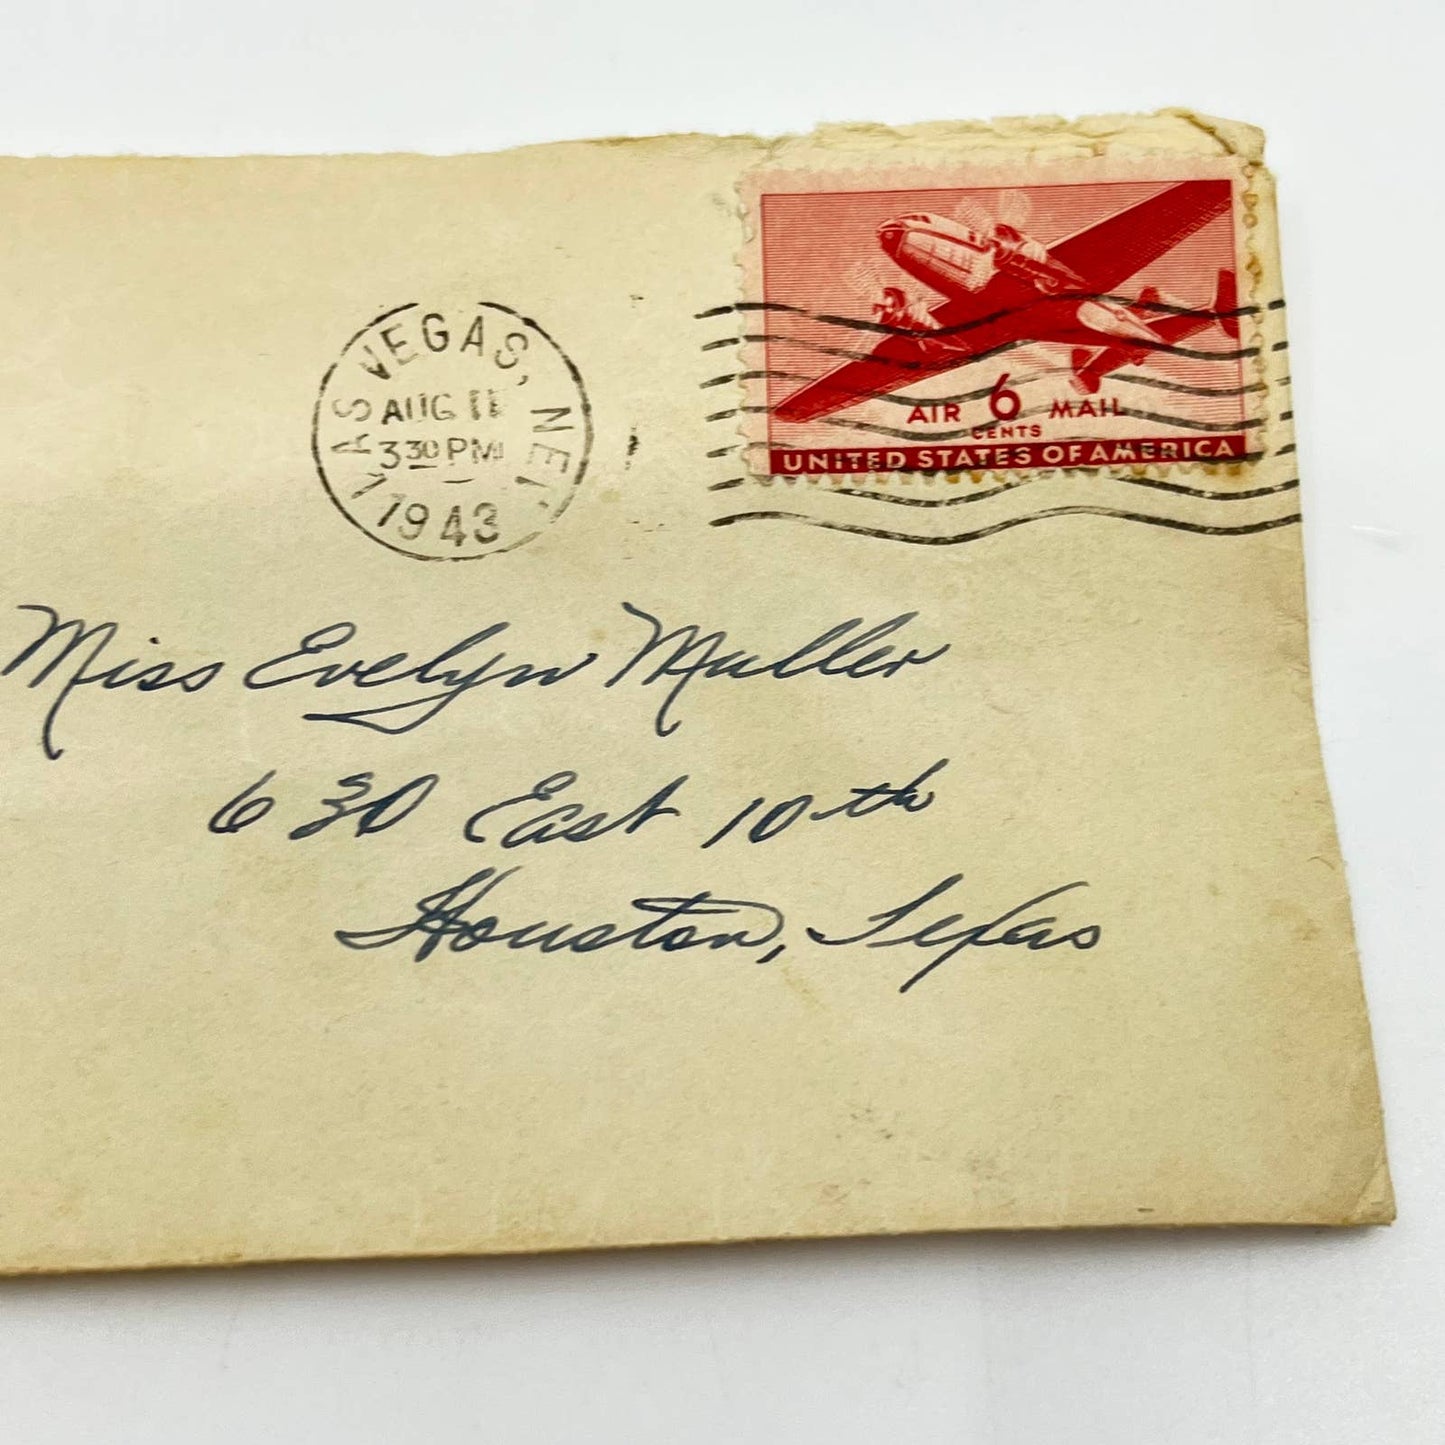 LAS VEGAS, NEV.
AUG 11
3 30 PM
1943
AIR 6 MAIL
CENTS
UNITED STATES OF AMERICA
Miss Evelyn Muller
630 East 10th
Houston, Texas